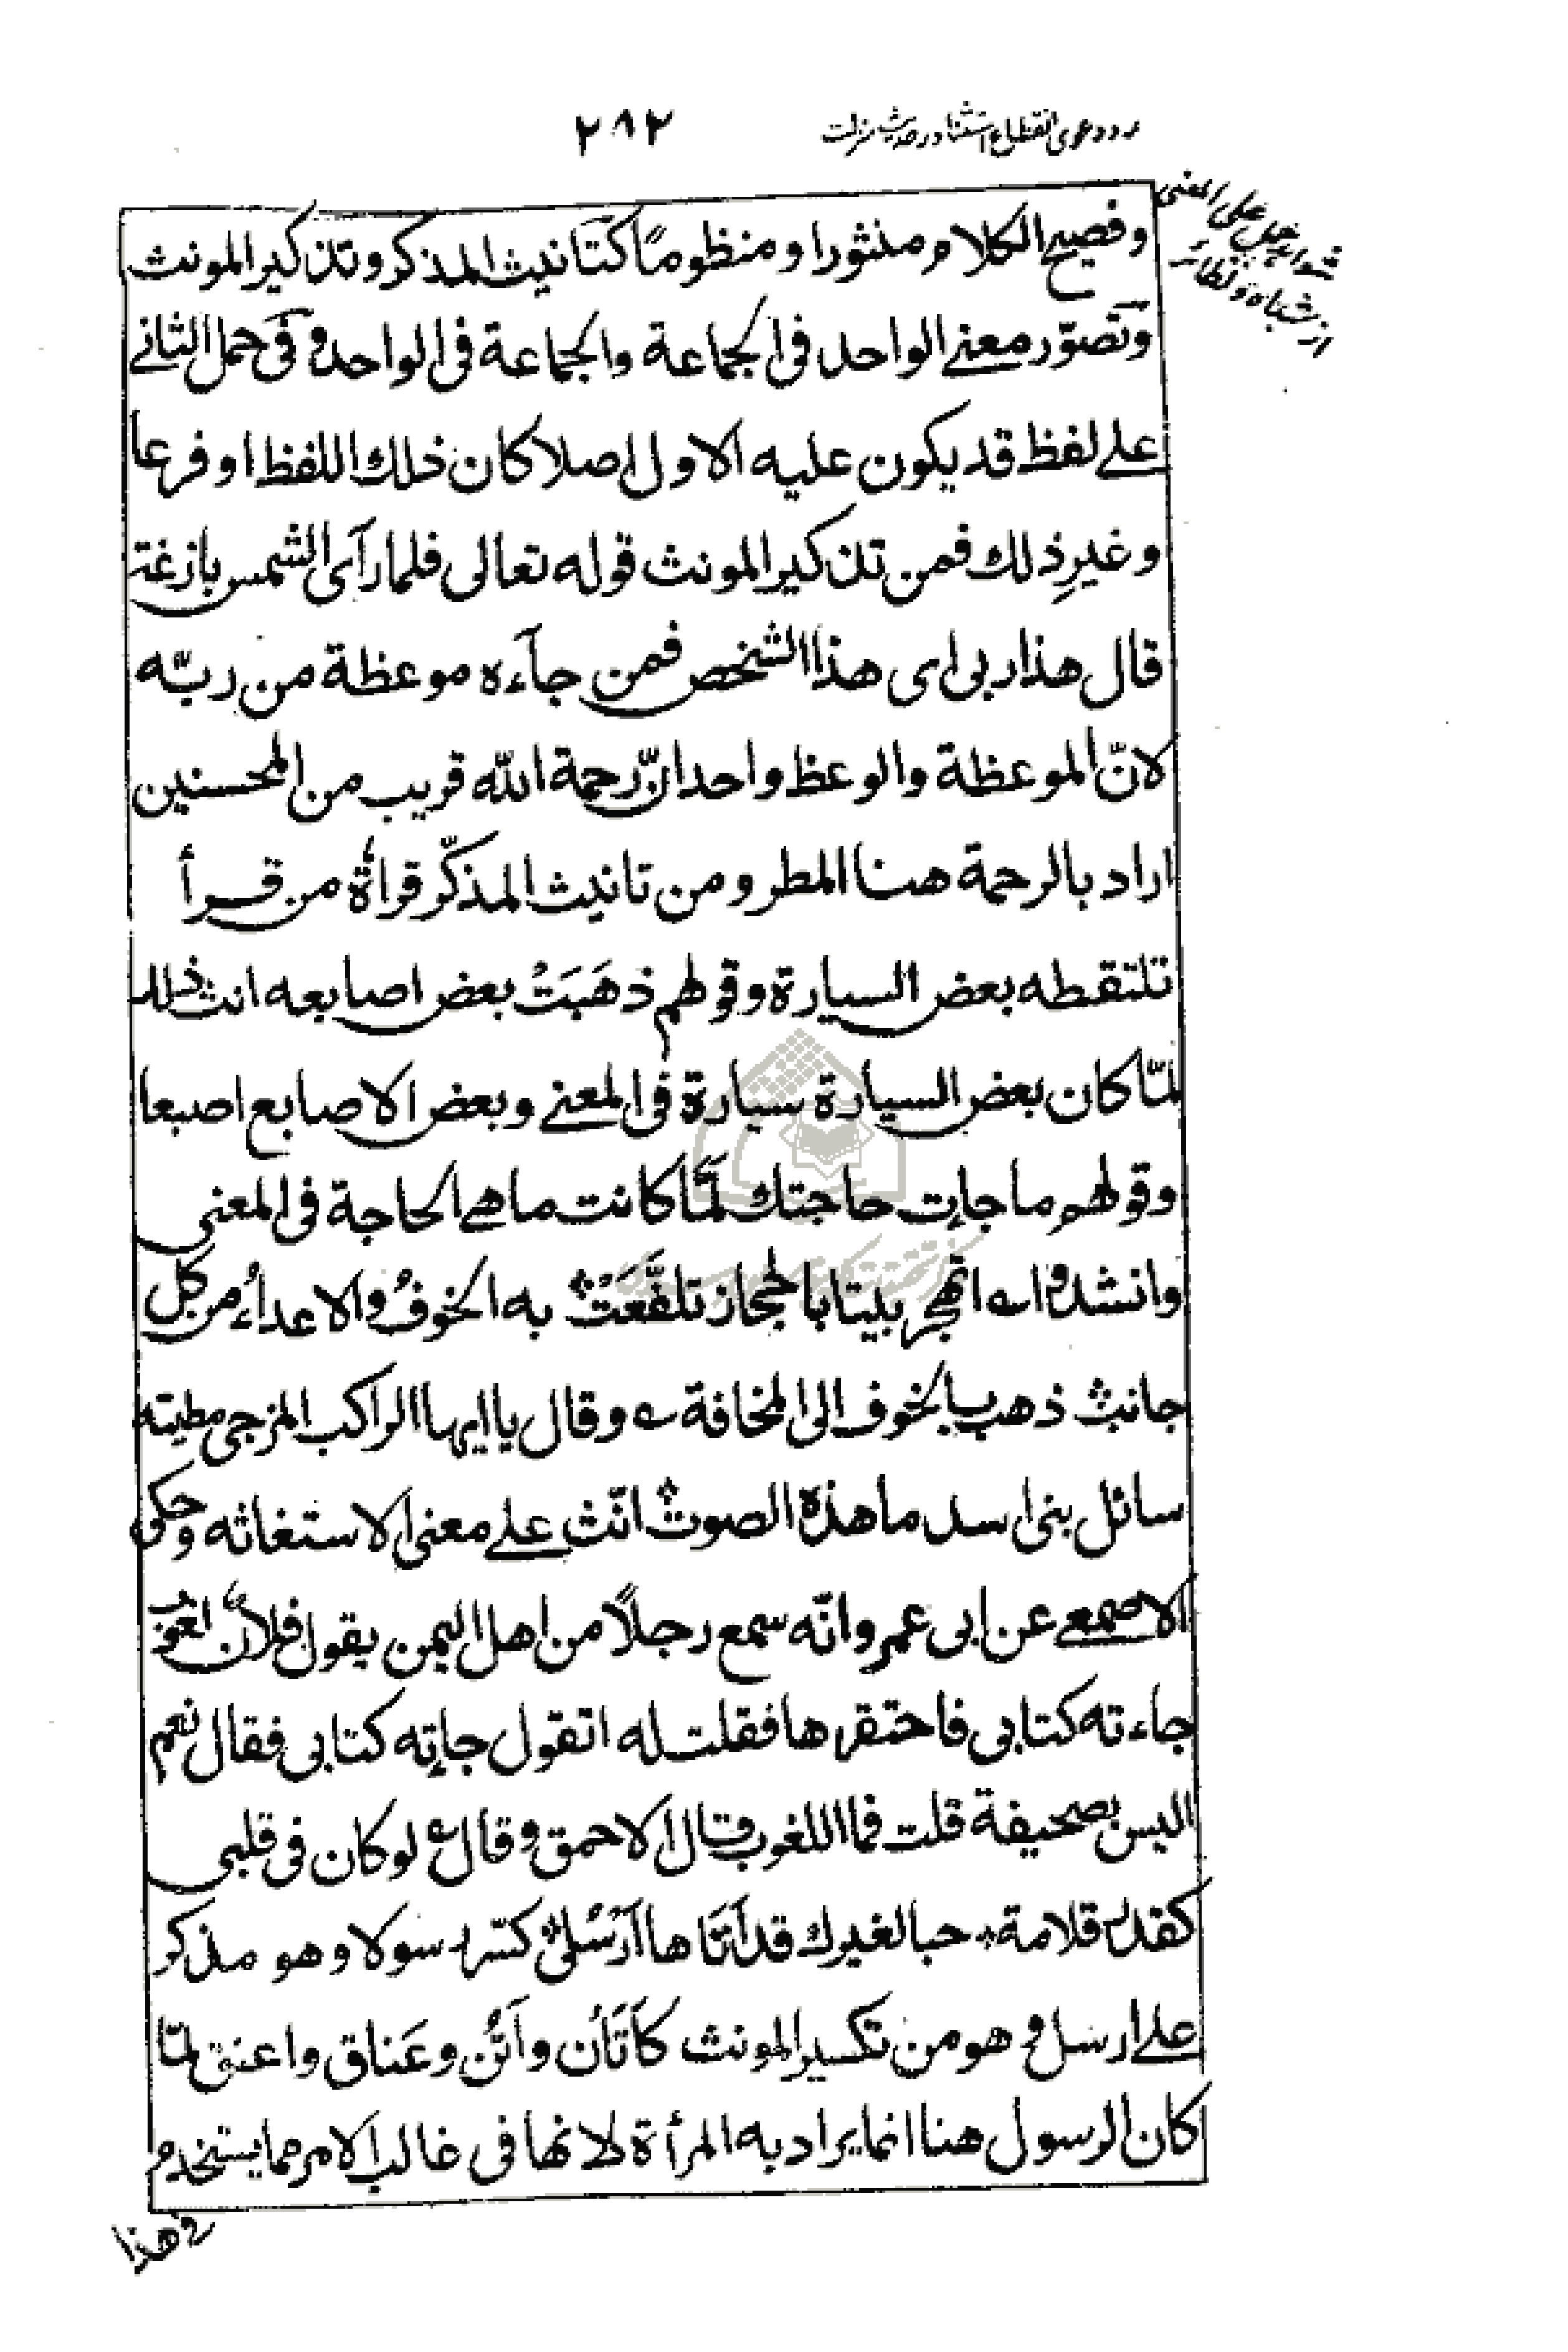 رد دعوی انقطاع استثنا در حدیث منزلت
۲۸۲
شواهد حمل علی المعنی
از اشباه و نظائر
وفصیح الکلام منثورا ومنظومًا کتانیث المذکر وتذکیر المونث
وتصوّر معنے الواحد فی الجماعة والجماعة فی الواحد وفی حمل الثانے
علے لفظ قد یکون علیه الاول اصلا کان ذلك اللفظ او فرعا
وغیرِ ذلك فمن تذکیر المونث قوله تعالی فلما رآی الشمس بازغة
قال هذا ربی ای هذا الشخص فمن جآءه موعظة من ربّه
لانّ الموعظة والوعظ واحد انّ رحمة الله قریب من المحسنین
اراد بالرحمة هنا المطر ومن تانیث المذکّر قراءة من قرأ
تلتقطه بعض السیارة وقولهم ذهَبَتُ بعض اصابعه انث ذلك
لمّا کان بعض السیارة سیارة فی المعنے وبعض الاصابع اصبعا
وقولهم ما جاءت حاجتك لمّا کانت ما هے الحاجة فی المعنی
وانشدوا ے اتهجر بیتا بالحجاز تلفَّعَتْ به الخوفُ والاعداءُ من کل
جانب ذهب بالخوف الی المخافة ے وقال یا ایها الراکب المزجی مطیته
سائل بنی اسد ما هذه الصوت انّث علے معنی الاستغاثه وحکی
الاصمعے عن ابی عمرو انّه سمع رجلاً من اهل الیمن یقول فلانٌ لغوب
جاءته کتابی فاحتقرها فقلت له اتقول جاءته کتابی فقال نعم
الیس بصحیفة قلت فما اللغوب قال الاحمق وقال ع لو کان فی قلبی
کقدر قلامة حبا لغیرك قد اَتَاها اَرْسُلی کسّر رسولا وهو مذکر
علے ارسل وهو من تکسیر المونث کاَتَان واٰتُن وعَناق واعنق لمّا
کان الرسول هنا انما یراد به المرأة لانها فی غالب الامر مما یستخدم
فی هذا